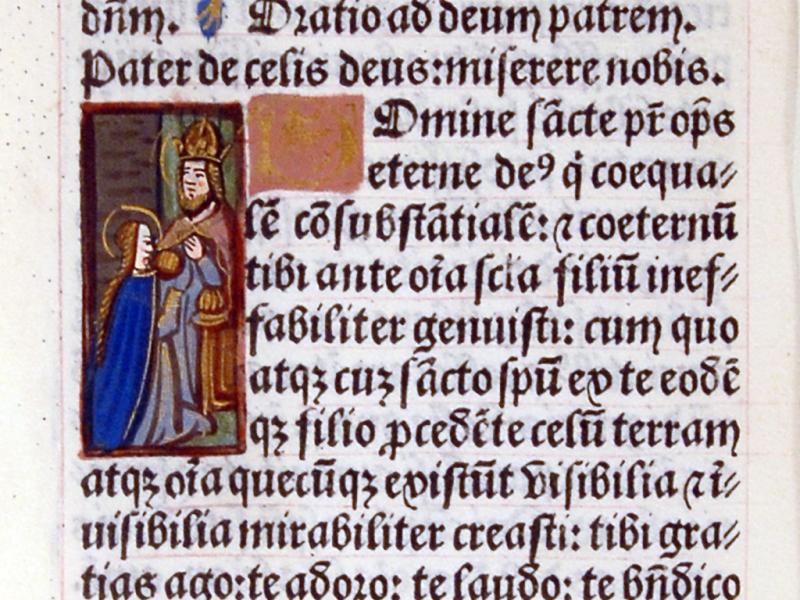 dñm. Oratio ad deum patrem.
Pater de celis deus: miserere nobis.
Domine sācte pr̄ op̄s
eterne deꝰ q̇ coequa⸗
lē cōsubstātialē: ⁊ coeternū
tibi ante oīa scla filiū inef⸗
fabiliter genuisti: cum quo
atqꝫ cuꝫ sācto spū ex te eodē
qꝫ filio ꝓcedēte celū terram
atqꝫ oīa quecūqꝫ existūt visibilia ⁊ ī⸗
uisibilia mirabiliter creasti: tibi gra⸗
tias ago: te adoro: te laudo: te bn̄dico